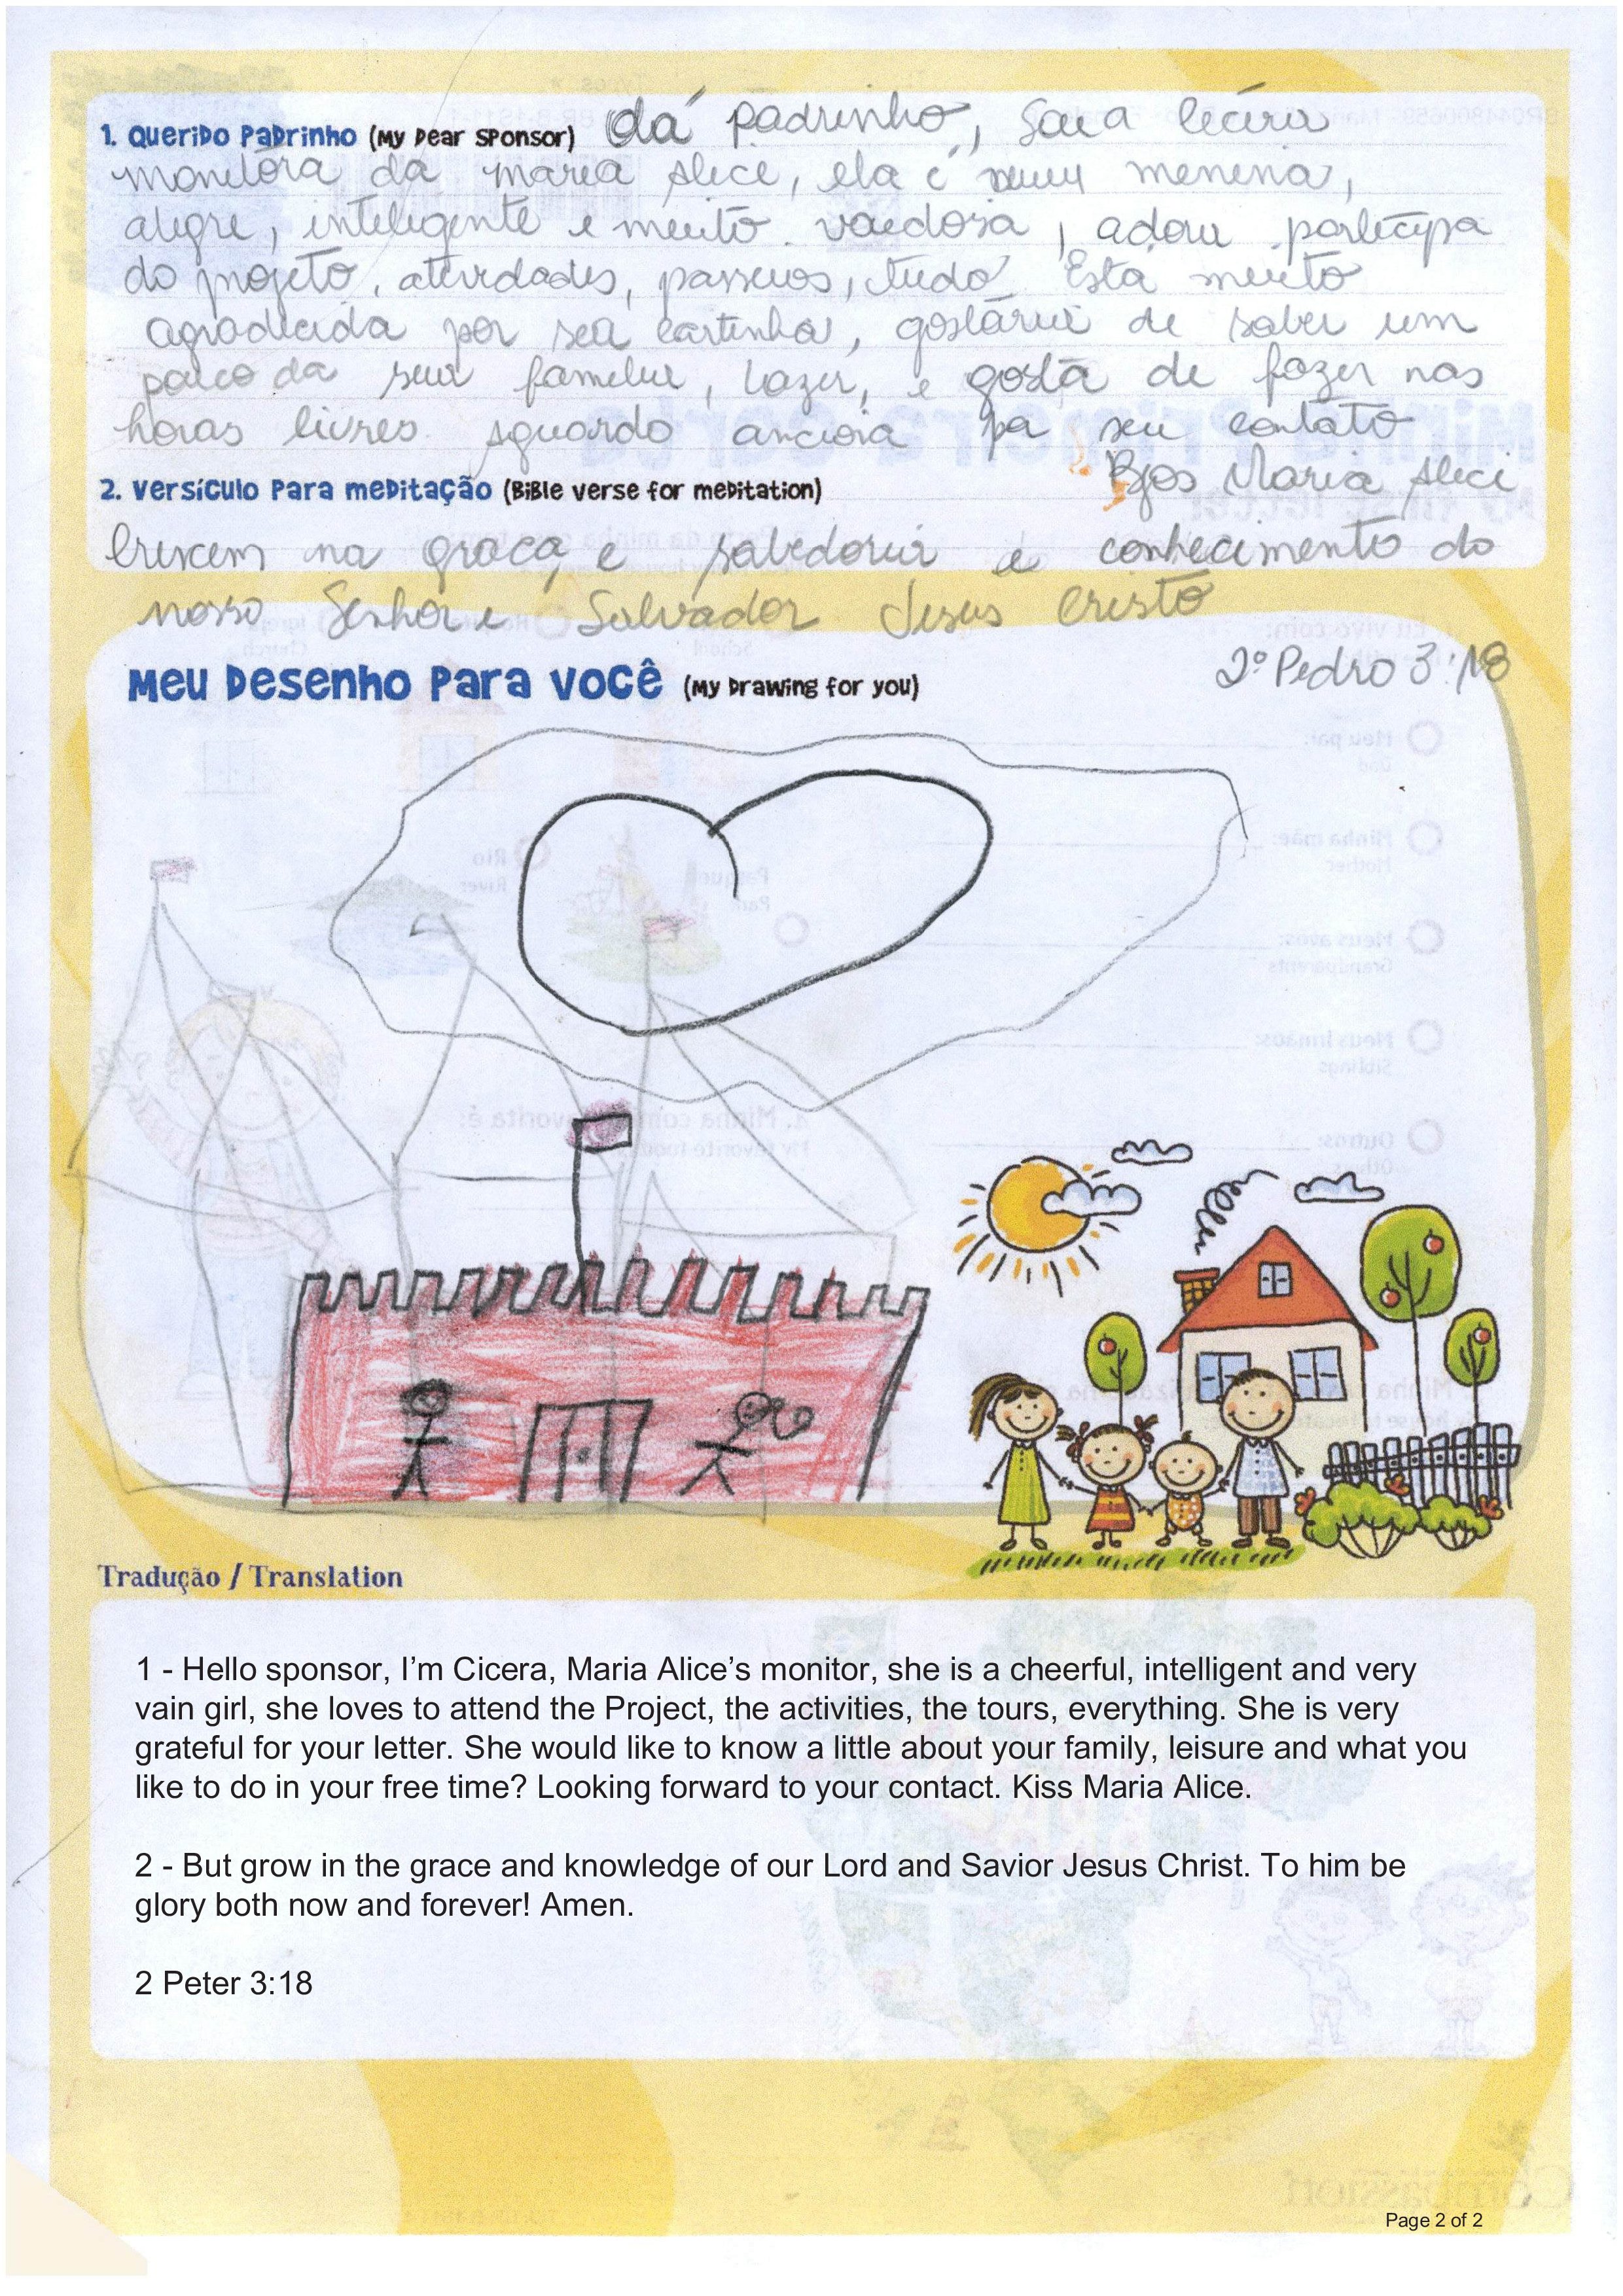 1. Querido Padrinho (My Dear Sponsor) padrinho, Sou a
monitora da maria Alice, ela é menina,
alegre, inteligente e muito vaedosa, adora participa
do projeto, atividades, passeios, tudo. Esta muito
agradecida por sua cartinha, gostaria de saber um
pouco da sua familia, lazer, e gosta de fazer nas
horas livres Aguardo anciosa pa seu contato
Bjos Maria Alici
2. Versículo Para Meditação (Bible verse for meditation)
Crescem na graça e sabedoria e conhecimento do
nosso Senhor e Salvador Jesus Cristo
2º Pedro 3:18
Meu Desenho Para Você (My Drawing for you)
Tradução / Translation
1 - Hello sponsor, I'm Cicera, Maria Alice's monitor, she is a cheerful, intelligent and very
vain girl, she loves to attend the Project, the activities, the tours, everything. She is very
grateful for your letter. She would like to know a little about your family, leisure and what you
like to do in your free time? Looking forward to your contact. Kiss Maria Alice.
2 - But grow in the grace and knowledge of our Lord and Savior Jesus Christ. To him be
glory both now and forever! Amen.
2 Peter 3:18
Page 2 of 2